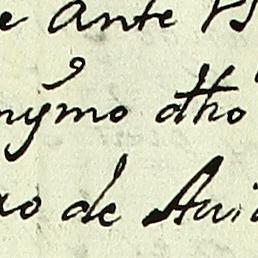 e ante VS
nymo dho
ro de Avi